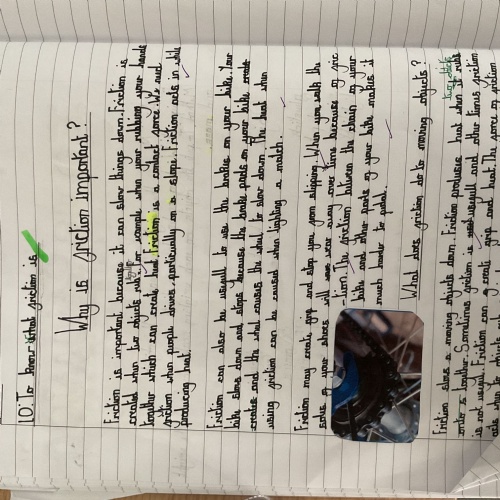 LO: To know what friction is
Why is friction important?
Friction is important because it can slow things down. Friction is
created when two objects rub, for example when your rubbing your hands
together which can create heat. Friction is a contact force. We need
friction when people drives particually on a slope. Friction acts in while
producing heat.
Friction can also be usefull to use the brakes on your bike. Your
bike slows down and stops because the brake pads on your bike
and the wheel causes the wheel to slow down. The heat when
using friction can be caused when lighting a match.
Friction may create grip and stops you slipping. When you walk the
sols of your shoes will wear
tion. The friction between the chain to your
bike and other parts to your bike makes it
much harder to pedal.
What does friction do to moving objects?
Friction slows a moving objects down. Friction produces heat when it rubs
onto a together. Sometimes friction is usefull and other times friction
is not useful. Friction can create grip and heat. The force in friction